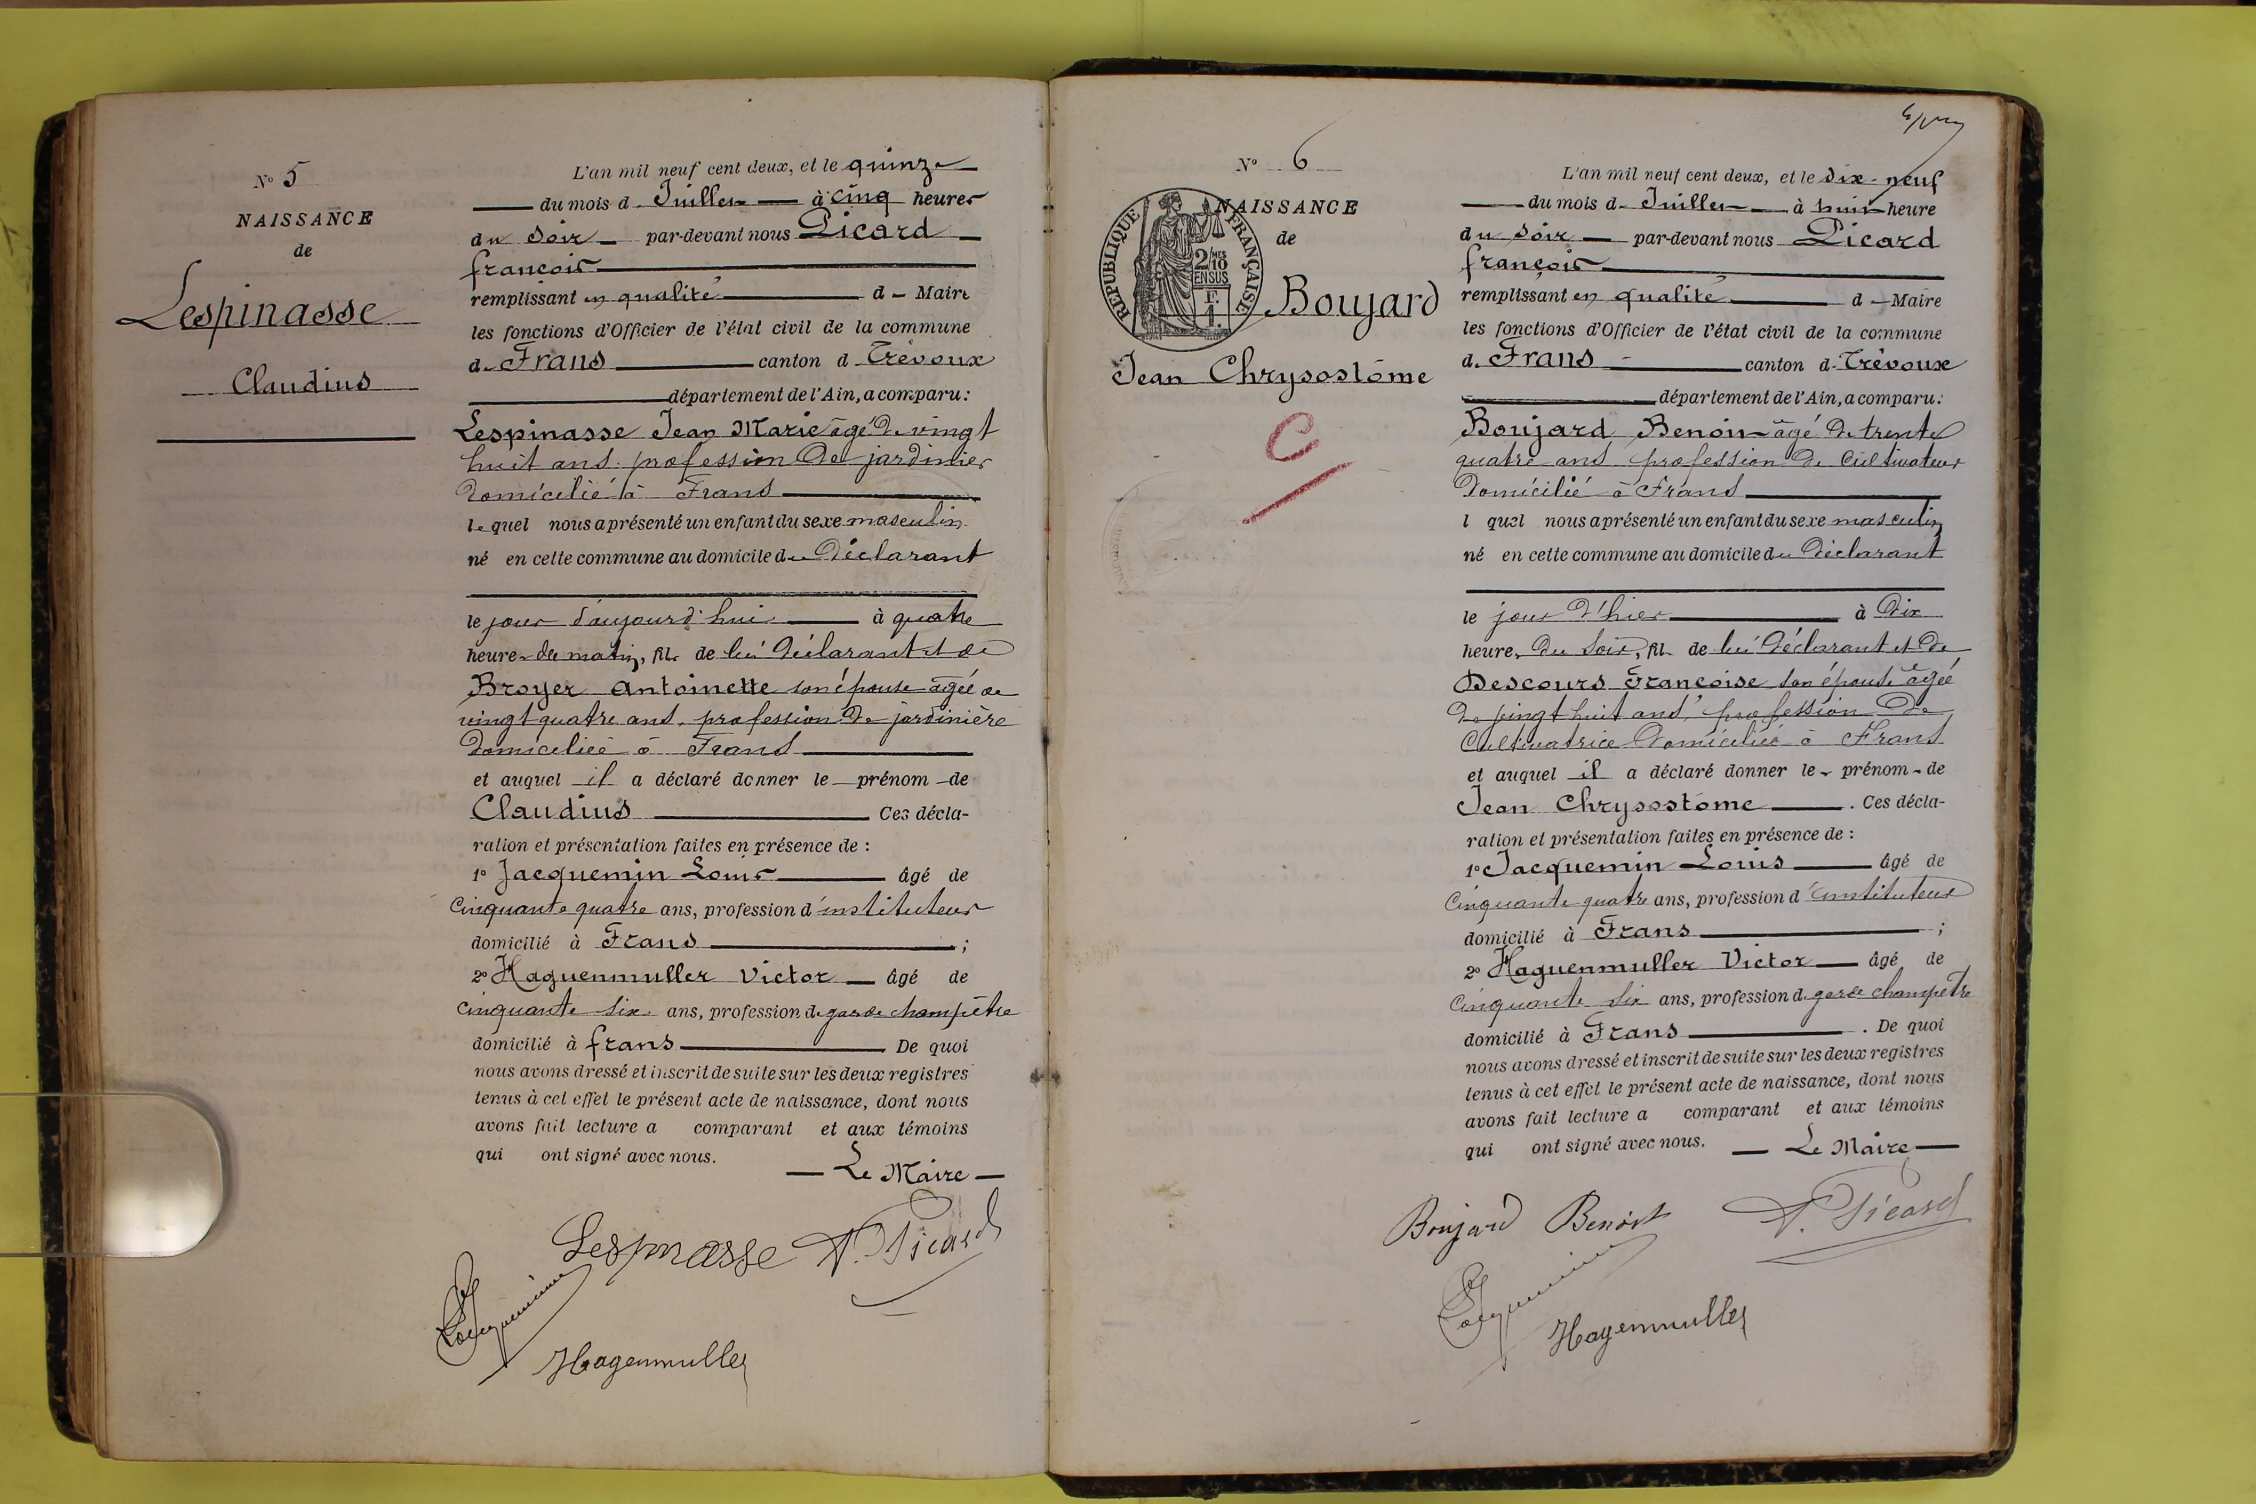 N° 5
NAISSANCE
de
Lespinasse
Claudius
L'an mil neuf cent deux, et le quinze
du mois de Juillet à cinq heures
du soir par-devant nous Picard
françois
remplissant en qualité de Maire
les fonctions d'Officier de l'état civil de la commune
de Frans canton de Trévoux
département de l'Ain, a comparu:
Lespinasse Jean Marie âgé de vingt
huit ans profession de jardinier
domicilié à Frans
lequel nous a présenté un enfant du sexe masculin
né en cette commune au domicile du déclarant
le jour d'aujourd'hui à quatre
heures du matin, fils de lui déclarant et de
Broyer Antoinette son épouse âgée de
vingt quatre ans, profession de jardinière
domiciliée à Frans
et auquel il a déclaré donner le prénom de
Claudius Ces décla-
ration et présentation faites en présence de :
1° Jacquemin Louis âgé de
cinquante quatre ans, profession d'instituteur
domicilié à Frans ;
2° Haguenmuller Victor âgé de
cinquante six ans, profession de garde champêtre
domicilié à frans De quoi
nous avons dressé et inscrit de suite sur les deux registres
tenus à cet effet le présent acte de naissance, dont nous
avons fait lecture a comparant et aux témoins
qui ont signé avec nous.
Le Maire
Lespinasse F. Picard
Jacquemin
Hagenmuller
N° 6
NAISSANCE
de
REPUBLIQUE FRANÇAISE
2/10 MES
EN SUS
1 F.
Boujard
Jean Chrysostôme
C
L'an mil neuf cent deux, et le dix-neuf
du mois de Juillet à huit heure
du soir par-devant nous Picard
françois
remplissant en qualité de Maire
les fonctions d'Officier de l'état civil de la commune
de Frans canton de Trévoux
département de l'Ain, a comparu:
Boujard Benoit âgé de trente
quatre ans profession de cultivateur
domicilié à Frans
l quel nous a présenté un enfant du sexe masculin
né en cette commune au domicile du déclarant
le jour d'hier à dix
heures du soir, fils de lui déclarant et de
Descours Françoise son épouse âgée
de vingt huit ans, profession de
cultivatrice domiciliée à Frans
et auquel il a déclaré donner le prénom de
Jean Chrysostôme . Ces décla-
ration et présentation faites en présence de :
1° Jacquemin Louis âgé de
cinquante quatre ans, profession d'instituteur
domicilié à Frans ;
2° Haguenmuller Victor âgé de
cinquante six ans, profession de garde champêtre
domicilié à Frans . De quoi
nous avons dressé et inscrit de suite sur les deux registres
tenus à cet effet le présent acte de naissance, dont nous
avons fait lecture a comparant et aux témoins
qui ont signé avec nous. Le Maire
Boujard Benoit F. Picard
Jacquemin
Hagenmuller